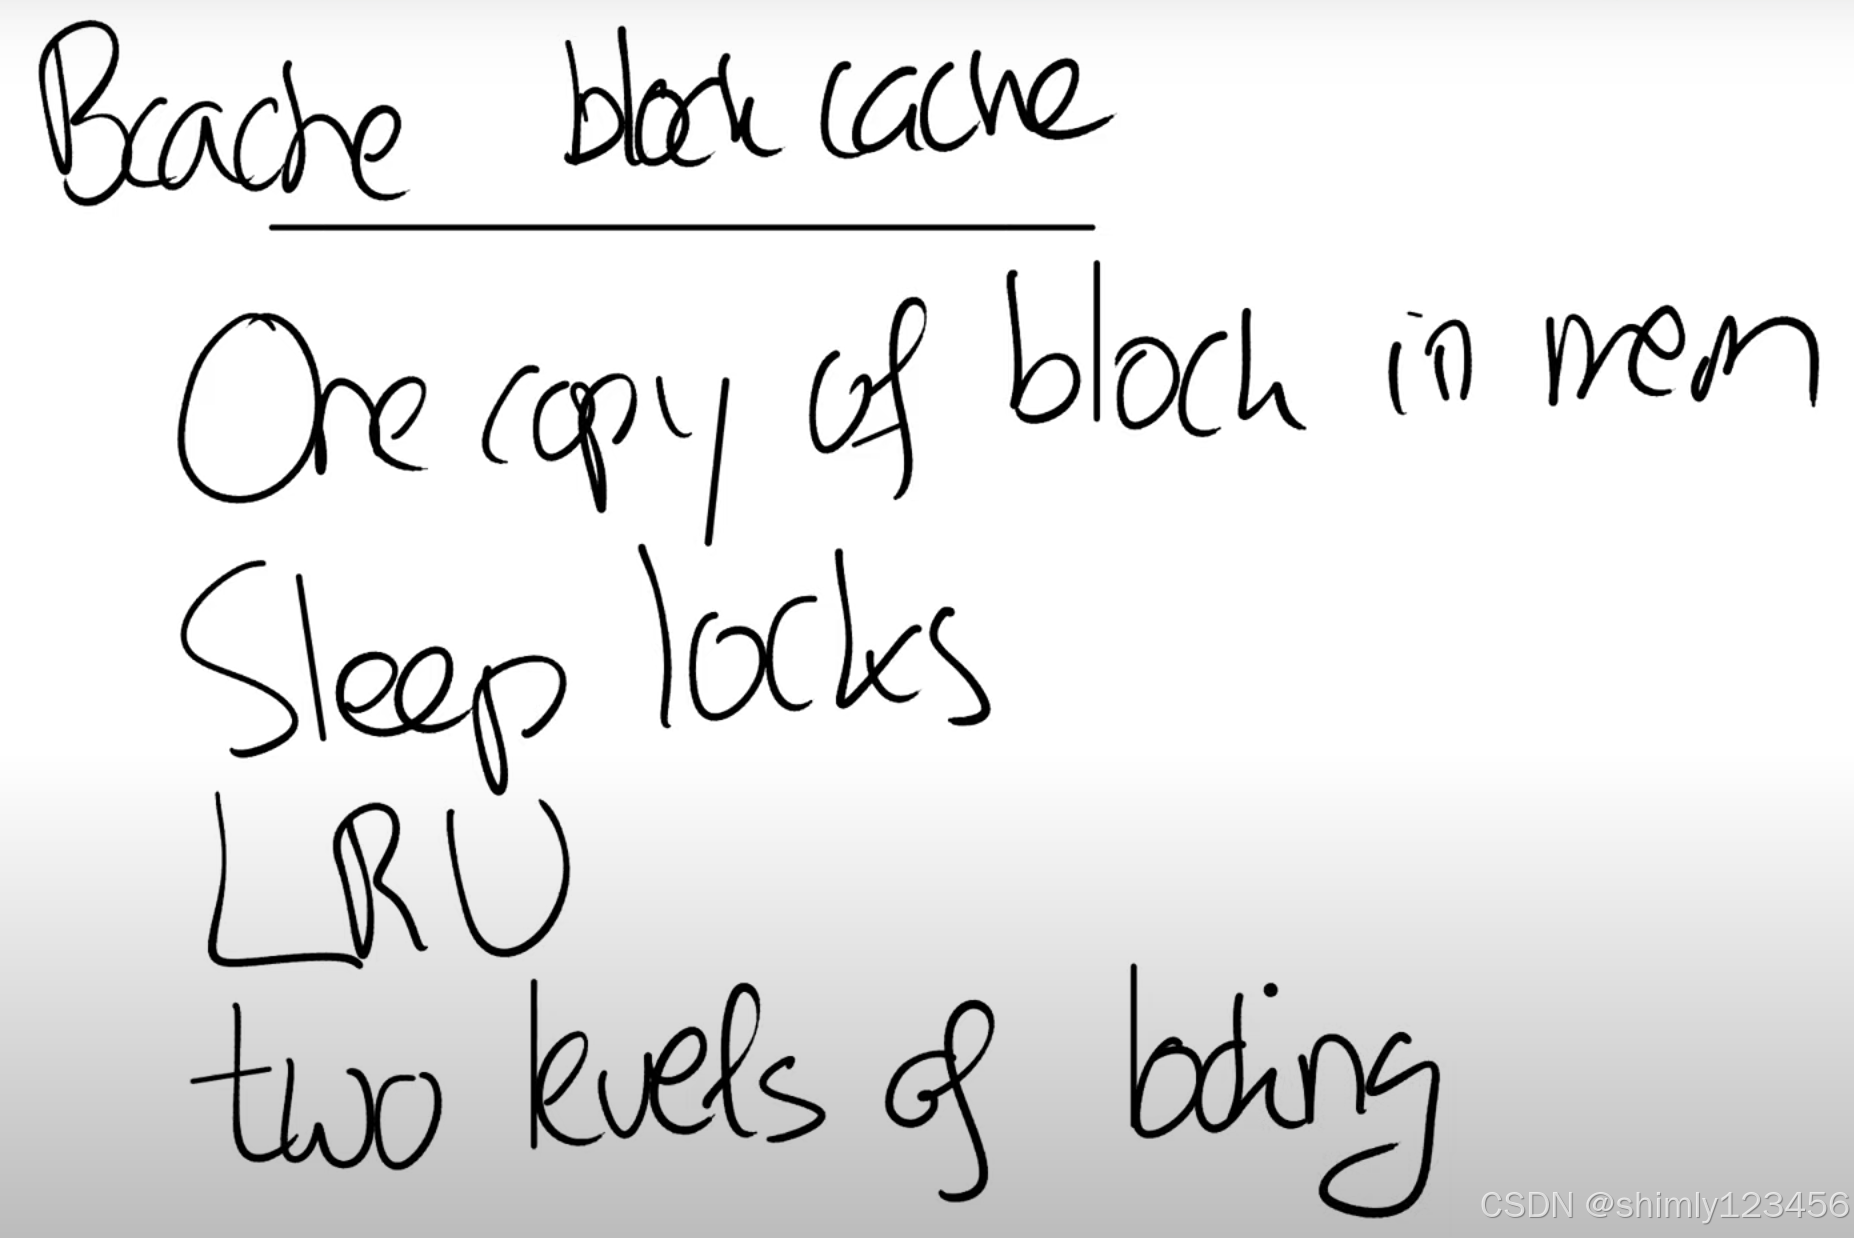 Bcache block cache
One copy of block in mem
Sleep locks
LRU
two levels of locking
CSDN @shimly123456